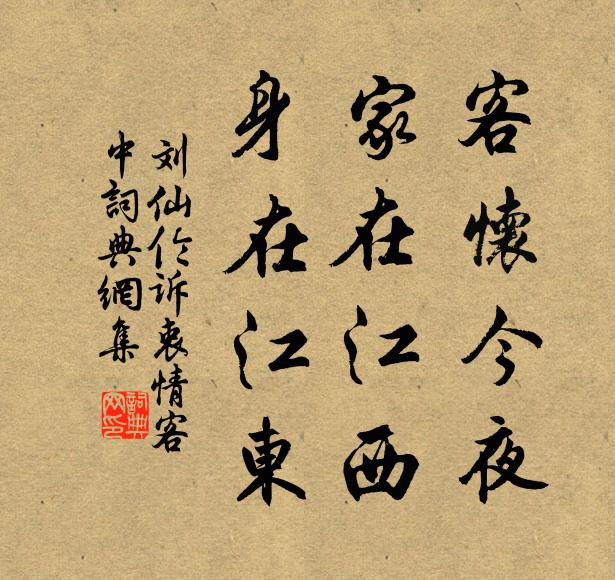 客懷今夜
家在江西
身在江東
刘仙伦诉衷情客
中詞典網集
詞典
网印